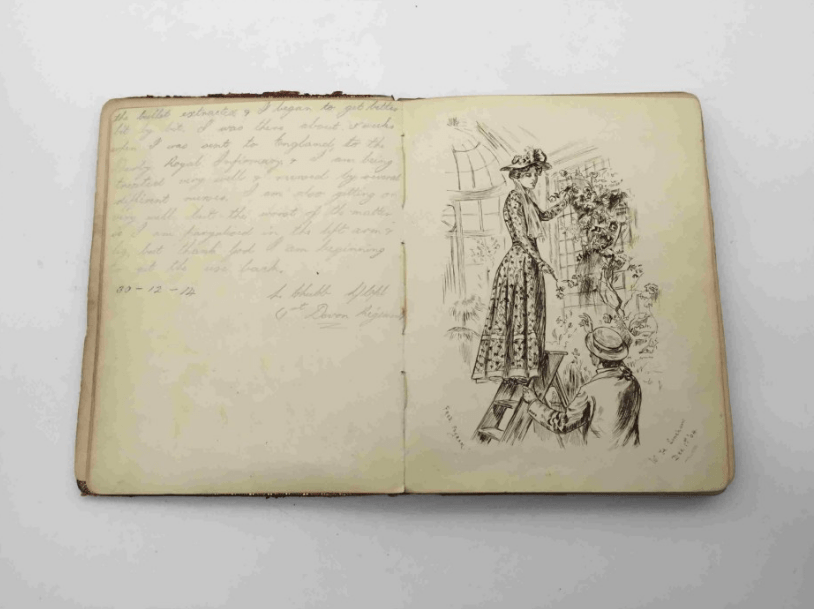 the bullet extracted & I began to get better
bit by bit. I was there about weeks
when I was sent to England, to the
Royal Infirmary & I am being
treated very well & nursed by
different nurses. I am also getting on
very well, but the worst of the matter
is I am paralysed in the left arm &
leg, but thank god I am beginning
to get the use back.
30-12-14
1st Devon Regiment
Dec 1914